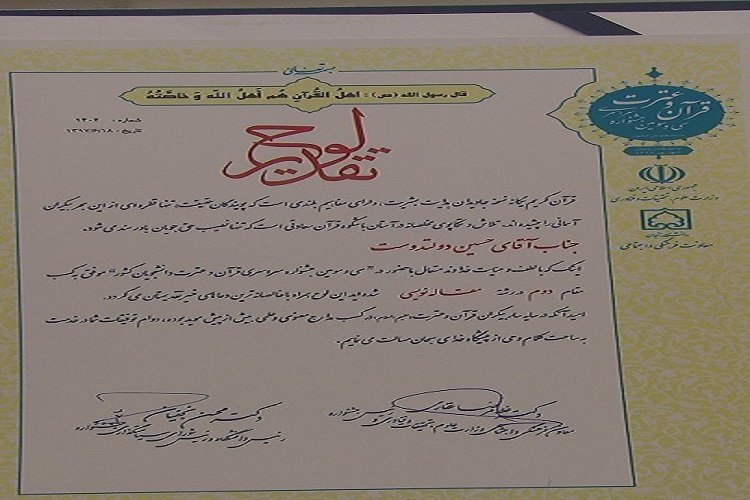 بسمه تعالی
قال رسول الله (ص) : اَهلُ القُرآنِ هُم اَهلُ اللّه وَ خاصَّتُهُ
شماره : ۱۴۰۲
تاریخ : ۱۳۹۷/۶/۱۸
لوح تقدیر
قرآن و عترت
سی و سومین جشنواره سراسری
جمهوری اسلامی ایران
وزارت علوم، تحقیقات و فناوری
معاونت فرهنگی و اجتماعی
قرآن کریم یگانه نسخه جاویدان هدایت بشریت، دارای مفاهیم بلندی است که پویندگان حقیقت، تنها قطره‌ای از این بحر بیکران
آسمانی را چشیده‌اند. تلاش و تکاپوی مخلصانه در آستان باشکوه قرآن سعادتی است که تنها نصیب حق‌جویان باورمند می شود.
جناب آقای حسین دولتدوست
اینک که با لطف و عنایت خداوند متعال با حضور در "سی و سومین جشنواره سراسری قرآن و عترت دانشجویان کشور" موفق به کسب
مقام دوم در رشته مقاله‌نویسی شده‌اید این لوح همراه با خالصانه ترین دعاهای خیر تقدیمتان می گردد.
امید آنکه در سایه سار بیکران قرآن و عترت علیهم السلام، در کسب مدارج معنوی و علمی بیش از پیش موید بوده، دوام توفیقات شما در خدمت
به ساحت کلام وحی از پیشگاه خدای سبحان مسالت می نمایم.
دکتر غلامرضا غفاری
معاون فرهنگی و اجتماعی وزارت علوم، تحقیقات و فناوری و رئیس جشنواره
دکتر محسن
رئیس دانشگاه و رئیس شورای سیاستگذاری جشنواره